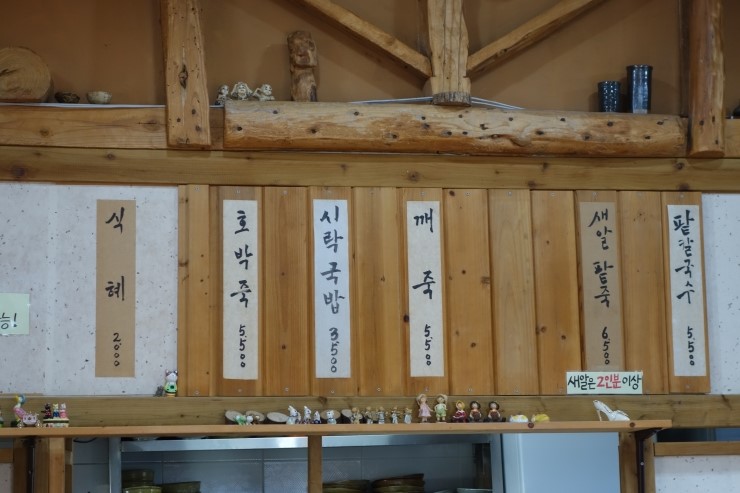 식혜 2000
호박죽 5500
시락국밥 3500
깨죽 5500
새알팥죽 6500
팥칼국수 5500
능!
새알은 2인분 이상